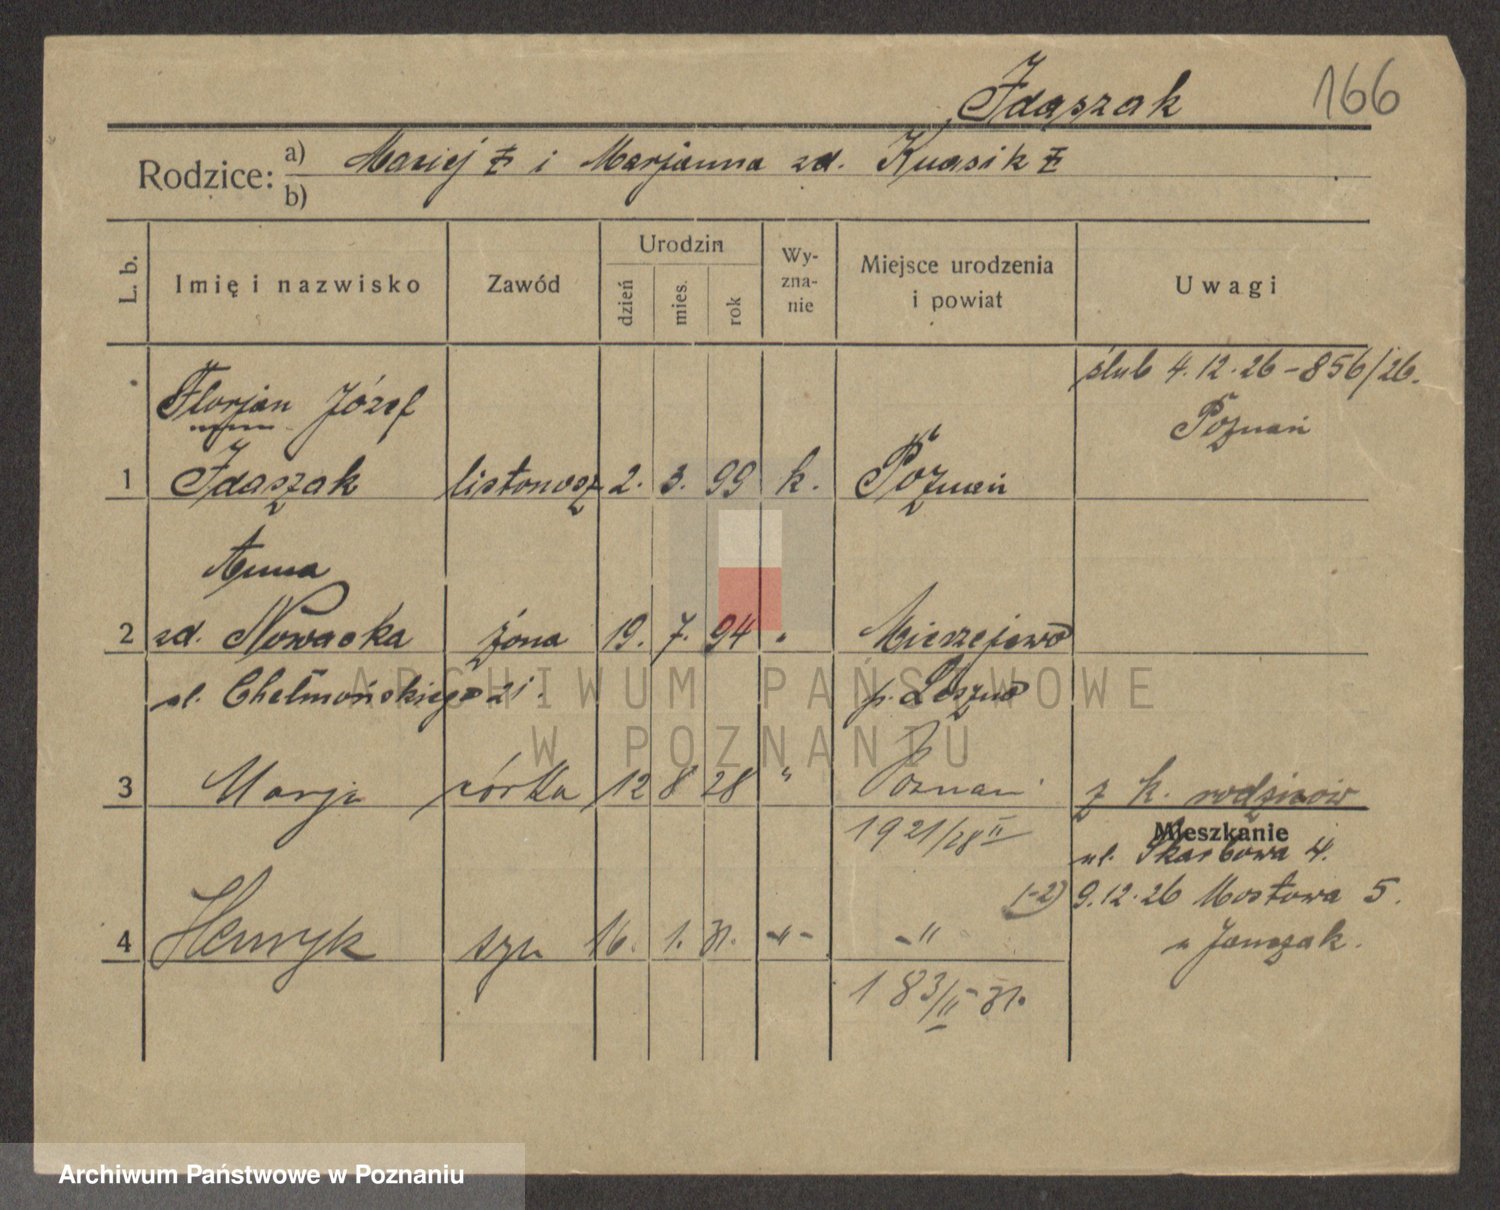 Idaszak 166
Rodzice: a) Maciej i Marjanna zd. Kwasik
b)
L. b. Imię i nazwisko Zawód Urodzin dzień mies. rok Wyznanie Miejsce urodzenia i powiat Uwagi
ślub 4.12.26 – 856/26.
Florjan Józef Poznań
1 Idaszak listonosz 2. 3. 99 k. Poznań
Anna
2 zd. Nowacka żona 19. 7. 94 " Mierzejewo
ul. Chełmońskiego 21. p. Leszno
3 Marja córka 12 8 28 " Poznań z k. rodziców
1921/28 II Mieszkanie
ul. Skarbowa 4.
(-2) 9.12.26 Mostowa 5.
4 Henryk syn 16. 1. 31. -"- -"- u Janczak.
183/II-31.
ARCHIWUM PAŃSTWOWE
W POZNANIU
Archiwum Państwowe w Poznaniu